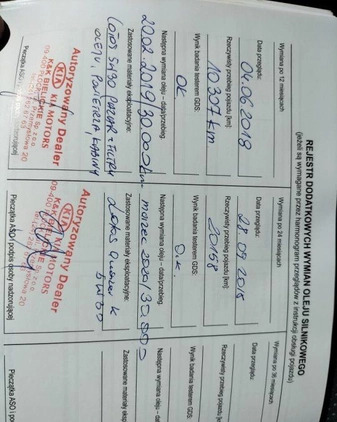 REJESTR DODATKOWYCH WYMIAN OLEJU SILNIKOWEGO
(jeżeli są wymagane przez harmonogram przeglądów z instrukcji obsługi pojazdu)
Wymiana po 12 miesiącach
Data przeglądu:
04.06.2018
Rzeczywisty przebieg pojazdu [km]:
10307km
Wynik badania testerem GDS:
OK
Następna wymiana oleju - data/przebieg.
2019/30.000km
Zastosowane materiały eksploatacyjne:
LOTOS 5W30 + FILTR
OLEJU, POWIETRZA KABINY
Autoryzowany Dealer
KIA
K&K BIELSKITE MOTORS
KIA MOTORS
Pieczątka ASO
Wymiana po 24 miesiącach
Data przeglądu:
28 09 2018
Rzeczywisty przebieg pojazdu [km]:
20168
Wynik badania testerem GDS:
O.K.
Następna wymiana oleju - data/przebieg.
marzec 2020/30.000
Zastosowane materiały eksploatacyjne:
Lotos Quazar K
5W30
Autoryzowany Dealer
KIA
KIA MOTORS
Pieczątka ASO i podpis osoby nadzorującej
Wymiana po 36 miesiącach
Data przeglądu:
Rzeczywisty przebieg pojazdu [km]:
Wynik badania testerem GDS:
Następna wymiana oleju - da
Zastosowane materiały eksp
Pieczątka ASO i po